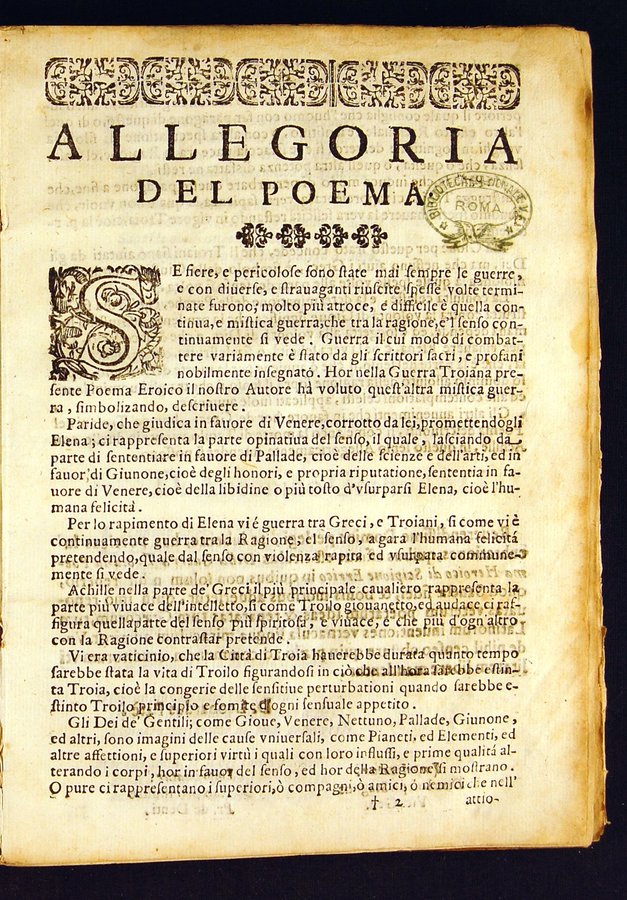 ALLEGORIA
DEL POEMA
ROMA
SE fiere, e pericolose sono state mai sempre le guerre,
e con diuerse, e strauaganti riuscite spesse volte termi-
nate furono; molto più atroce, e difficile è quella con-
tinua, e mistica guerra, che tra la ragione, e'l senso con-
tinuamente si vede. Guerra il cui modo di combat-
tere variamente è stato da gli scrittori sacri, e profani
nobilmente insegnato. Hor nella Guerra Troiana pre-
sente Poema Eroico il nostro Autore hà voluto quest'altra mistica guer-
ra, simbolizando, descriuere.
Paride, che giudica in fauore di Venere, corrotto da lei, promettendogli
Elena; ci rappresenta la parte opinatiua del senso, il quale, lasciando da
parte di sententiare in fauore di Pallade, cioè delle scienze e dell'arti, ed in
fauor di Giunone, cioè degli honori, e propria riputatione, sententia in fa-
uore di Venere, cioè della libidine o più tosto d'vsurparsi Elena, cioè l'hu-
mana felicità.
Per lo rapimento di Elena vi é guerra tra Greci, e Troiani, si come vi è
continuamente guerra tra la Ragione, el senso, a gara l'humana felicitá
pretendendo, quale dal senso con violenza rapita ed vsurpata commune-
mente si vede.
Achille nella parte de' Greci il più principale caualiero rappresenta la
parte più viuace dell'intelletto, si come Troilo giouanetto, ed audace ci raf-
figura quella parte del senso più spiritosa, e viuace, e che più d'ogn altro
con la Ragione contrastar pretende.
Vi era vaticinio, che la Città di Troia hauerebbe durata quanto tempo
sarebbe stata la vita di Troilo figurandosi in ciò che all'hora sarebbe estin-
ta Troia, cioè la congerie delle sensitiue perturbationi quando sarebbe e-
stinto Troilo principio e fomite d'ogni sensuale appetito.
Gli Dei de' Gentili; come Gioue, Venere, Nettuno, Pallade, Giunone,
ed altri, sono imagini delle cause vniuersali, come Pianeti, ed Elementi, ed
altre affettioni, e superiori virtù i quali con loro influssi, e prime qualitá al-
terando i corpi, hor in fauor del senso, ed hor della Ragione si mostrano.
O pure ci rappresentano i superiori, ò compagni, ò amici, ó nemici che nell'
† 2 attio-